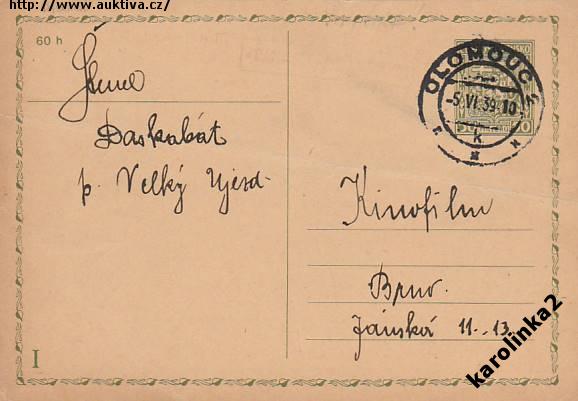 http://www.auktiva.cz/
60 h
Daskabát
p. Velký Újezd
OLOMOUC 2
-5.VI.39.10
k
50
Kinofilm
Brno.
Jánská 11.-13.
I
karolinka2